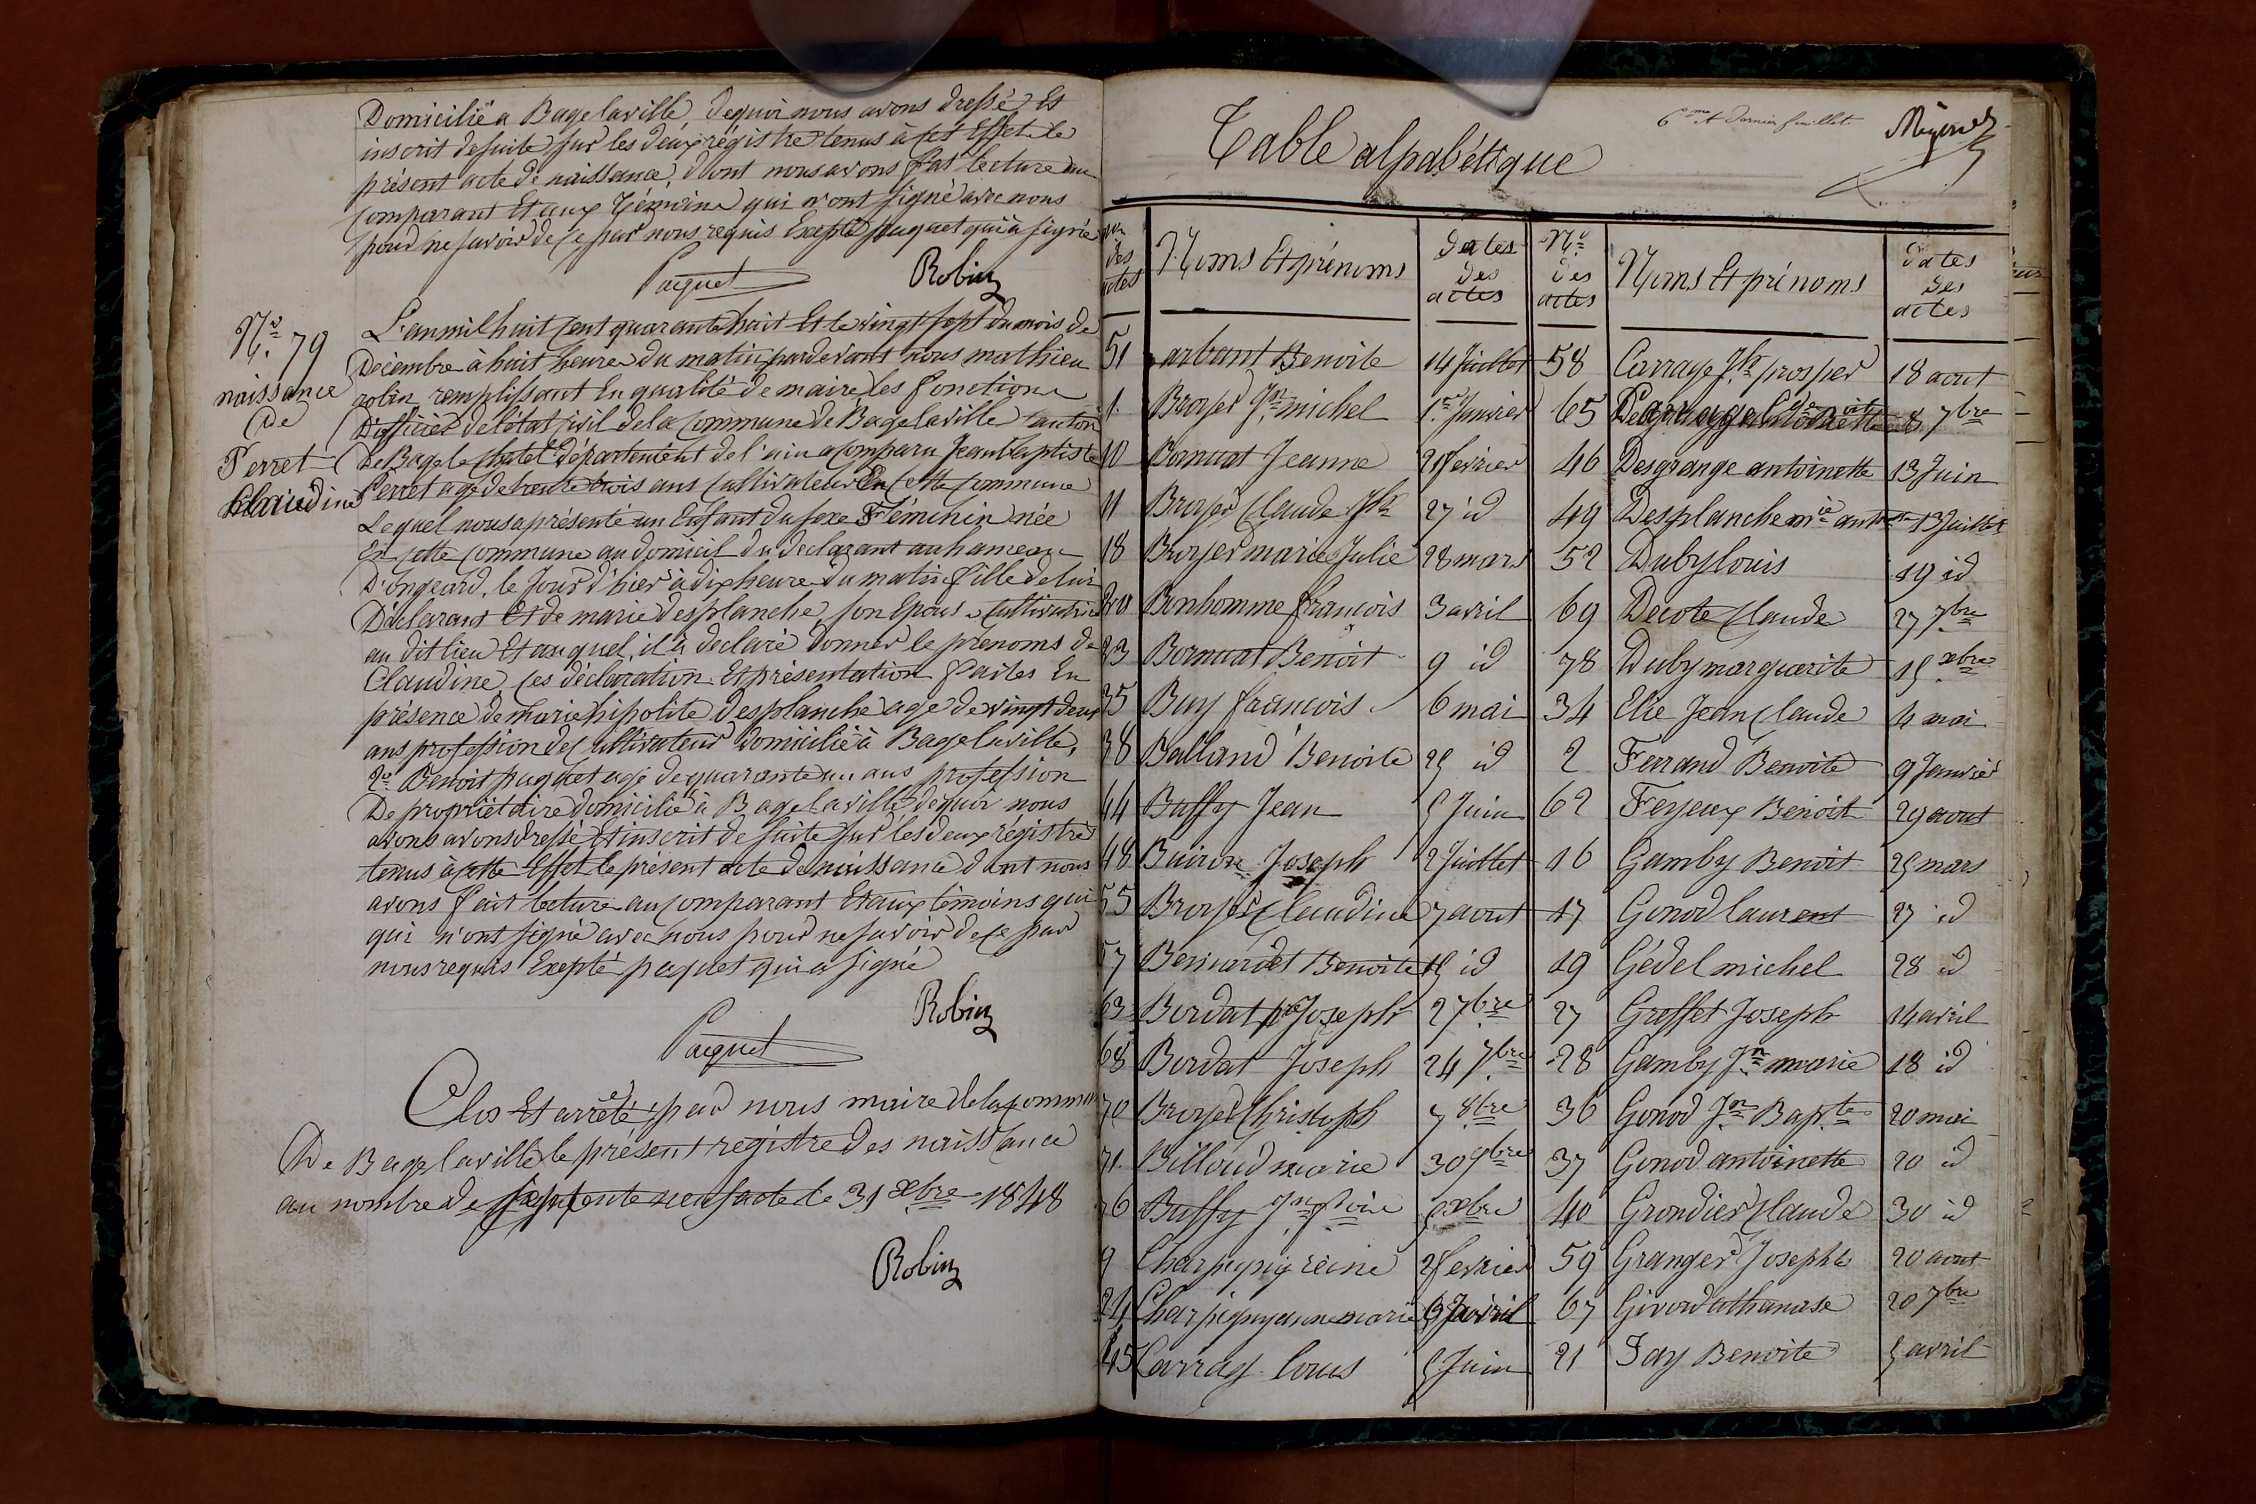 Domicilié a Bagelaville, dequoi nous avons dressé Et
inscrit desuite sur les deux régistre tenus à cet Effet le
présent acte de naissance, dont nous avons fait lecture au
Comparant Et aux Témoins qui n'ont signé avec nous
pour ne savoir de ce par nous requis Excepté paquet qui a signé
Paquet Robin
N.º 79
naissance
de
Perret
Claudine
L'an mil huit cent quarante huit Et le vingt sept du mois de
Décembre à huit heure du matin pardevant nous mathieu
robin remplissant En qualité de maire les fonction
D'officier de létat civil de la Commune de Bagelaville canton
de Bagele chatel Département de l'ain a comparu Jean Baptiste
Perret agé de trente trois ans Cultivateur En Cette Commune
Lequel nous a présenté un Enfant du sexe Féminin née
En Cette Commune au domicil du declarant au hameau
D'ongeard, le Jour d'hier à dix heure du matin fille de lui
Déclarant Et de marie desplanche, son Epouse Cultivatrice
au dit lieu Et auquel, il a declaré donner le prenoms de
Claudine, ces déclaration Et présentation faites En
présence de marie hipolite desplanche age de vingt deux
ans profession de Cultivateur domicilié à Bagelaville,
2º Benoit paquet agé de quarante un ans profession
De propriétaire domicilié à Bagelaville dequoi nous
avons avons dressé Et inscrit de suite sur les deux régistre
tenus à cette Effet le présent acte de naissance dont nous
avons fait lecture au comparant Et aux témoins qui
qui n'ont signé avec nous pour ne savoir de ce par
nous requis Exepté paquet qui a signé
Robin
Paquet
Clos Et arrêté par nous maire de la Commun
De Bagelaville le présent registre des naissance
au nombre de septente neuf acte le 31 xbre 1848
Robin
6me et Dernier feuillet
Table alpabétique
des actes | Noms Et prénoms | dates des actes | Nº des actes | Noms Et prénoms | dates des actes
51 arbant Benoite 14 Juillet 58 Carrage Jh prosper 18 aout
1. Broyer Jn michel 1er Janvier 65 8 7bre
10 Bornuat Jeanne fevrier 46 Desgrange antoinette 13 Juin
11 Broyer Claude Jh 27 id 49 Desplanche mie Juillet
18 Broyer marie Julie 28 mars 52 Duby louis 19 id
20 Bonhomme francois 3 avril 69 Decote Claude 27 7bre
23 Bornuat Benoit 9 id 78 Duby marguerite 15 xbre
35 Buy francois 6 mai 34 Elie Jean Claude 4 mai
38 Balland Benoite 25 id 2 Ferrand Benoite 9 Janvier
44 Buffy Jean 5 Juin 62 Ferjeux Benoit 29 aout
48 Buiron Joseph 2 Juillet 16 Gamby Benoit 25 mars
55 Broyer Claudine 7 aout 17 Gonod laurent 27 id
57 Bernardet Benoite 15 id 19 Gédel michel 28 id
63 Bordat pre Joseph 2 7bre 27 Greffet Joseph 14 avril
68 Bordat Joseph 24 7bre 28 Gamby Jn marie 18 id
70 Broyer Christoph 7 8bre 36 Gonod Jn Bapte 20 mai
71. Billoud marie 30 9bre 37 Gonod antoinette 20 id
76 Buffy 5 xbre 40 Grondier Claude 30 id
9 Charpigny reine 2 fevrier 59 Granger Joseph 20 aout
24 Charpigny anne marie avril 67 Girod athanase 20 7bre
45 Carrag louis 5 Juin 21 Jay Benoite 5 avril